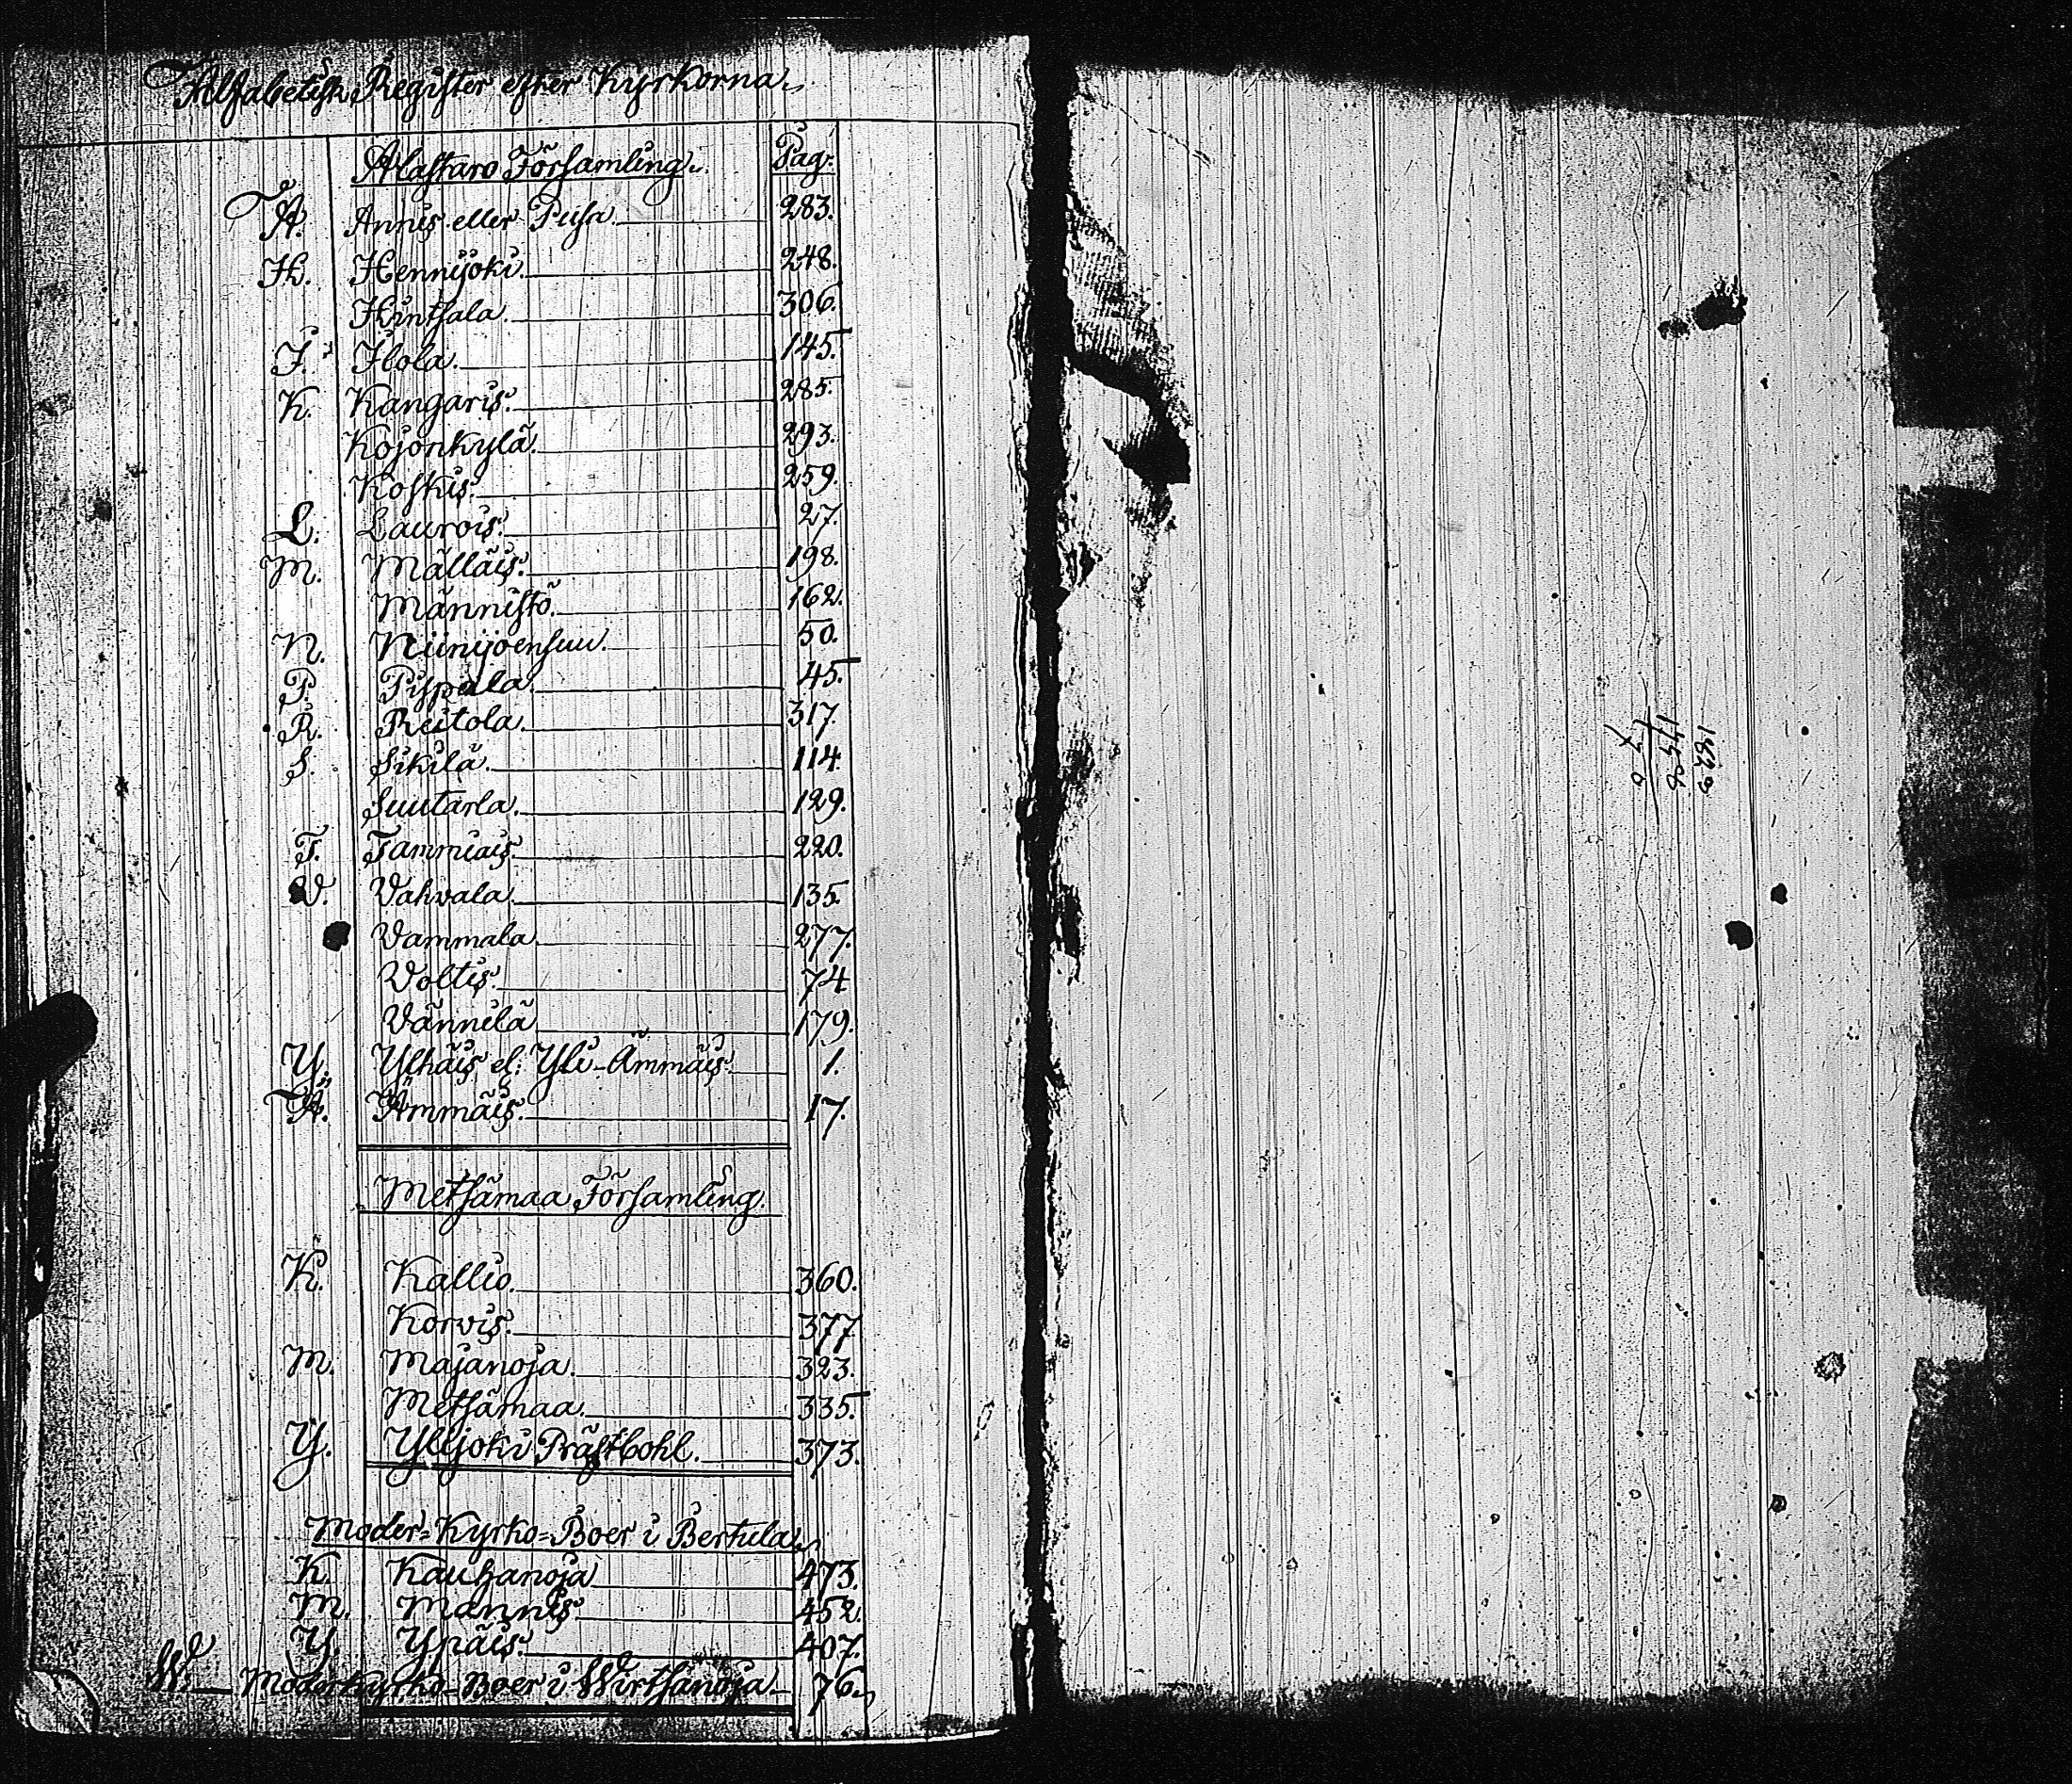 Alfabetisk Register efter Kyrkorna
Alastaro Församling. Pag.
A. Annis eller Pusa 283.
H. Hennijoki 248.
Hintsala 306.
I. Ilola 145.
K. Kangaris 285.
Kojonkylä 293.
Koskis 259.
L. Laurois 27.
M. Mälläis 198.
Männistö 162.
N. Niinijoensuu 50.
P. Pispala 45.
R. Reitola 317.
S. Sikilä 114
Suutarla 129.
T. Tammiais 220.
V. Vahvala 135.
Vammala 277.
Voltis 74
Vännilä 179.
Y. Ylhäis el: Yli-Ämmäis 1.
Ä. Ämmäis 17.
Metsämaa Församling.
K. Kallio 360.
Korvis 377
M. Majanoja 323.
Metsämaa 335.
Y. Ylijoki Prästbohl 373.
Moder-Kyrko-Boer i Bertula
K. Kauhanoja 473.
M. Mannis 452.
Y. Ypäis 407.
W. Moderkyrko-Boer i Wirtsanoja 76.